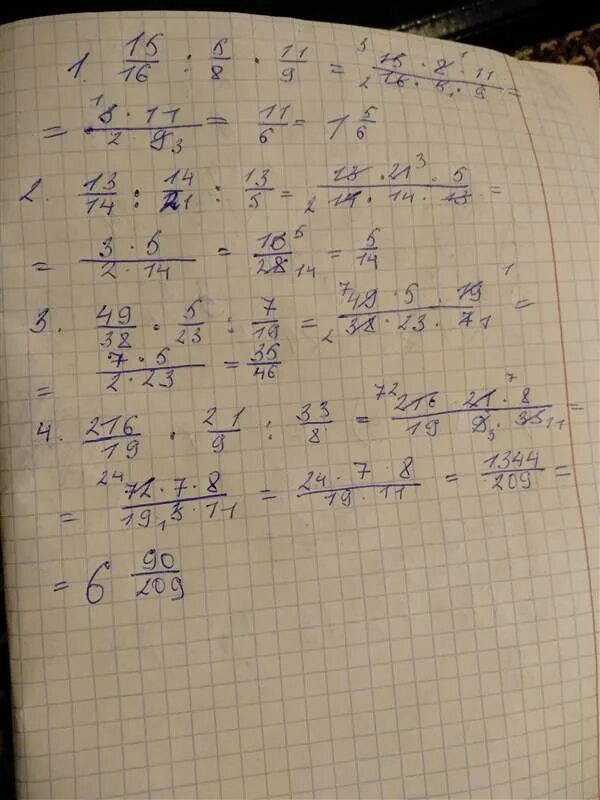 1. 15/16 : 5/8 · 11/9 = 15 · 8 · 11 / 16 · 5 · 9 =
= 3 · 11 / 2 · 9 = 11/6 = 1 5/6
2. 13/14 : 14/21 : 13/5 = 13 · 21 · 5 / 14 · 14 · 13 =
= 3 · 5 / 2 · 14 = 15/28 = 5/14
3. 49/38 · 5/23 : 7/19 = 49 · 5 · 19 / 38 · 23 · 7 =
= 7 · 5 / 2 · 23 = 35/46
4. 216/19 · 21/9 : 33/8 = 216 · 21 · 8 / 19 · 9 · 33 =
= 72 · 7 · 8 / 19 · 3 · 11 = 24 · 7 · 8 / 19 · 11 = 1344/209 =
= 6 90/209